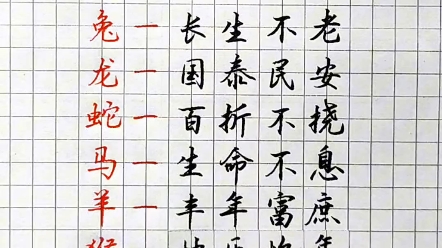 兔一长生不老
龙一国泰民安
蛇一百折不挠
马一生命不息
羊一丰年富庶